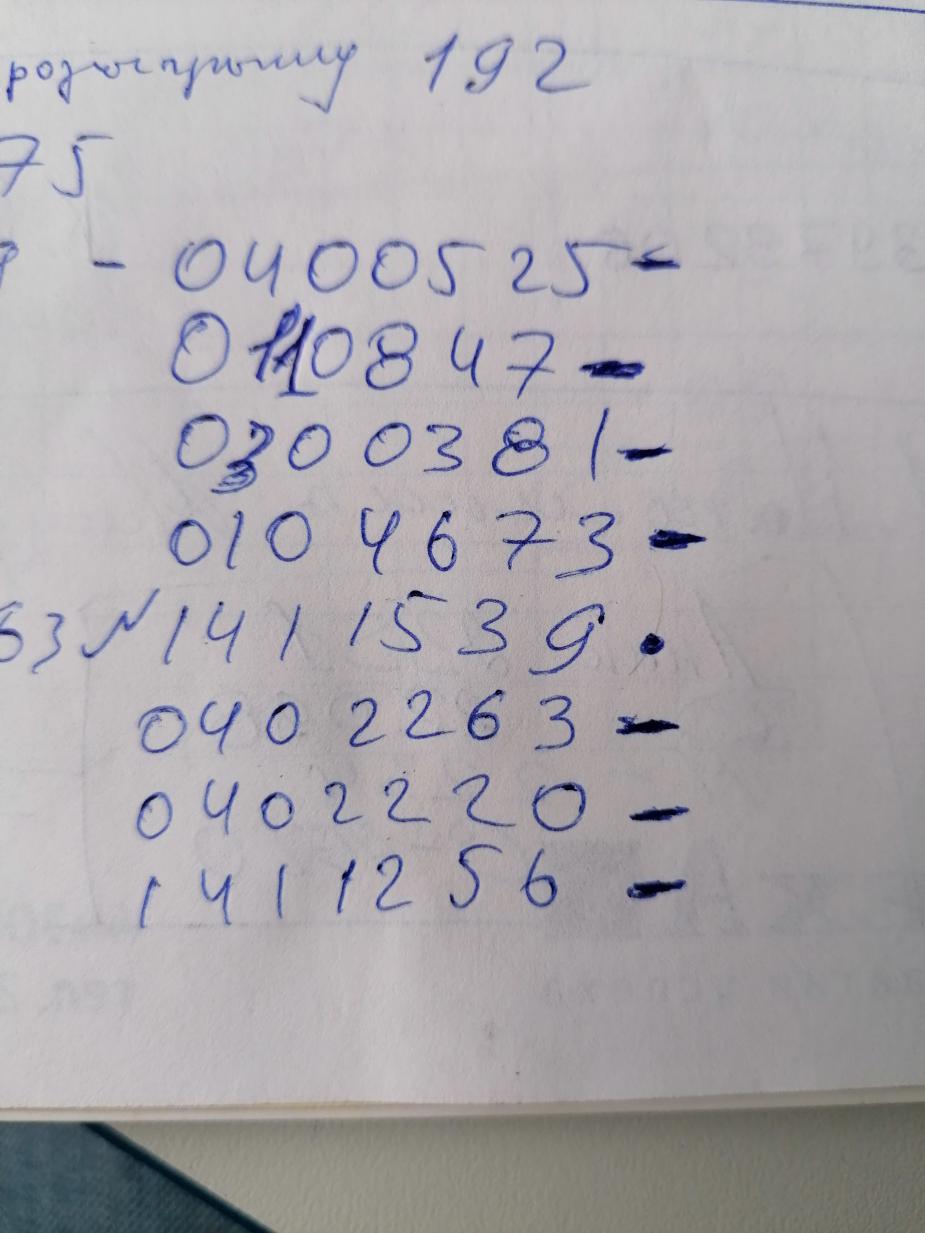 розыгрышу 192
75
- 0400525 -
0110847 -
0300381 -
0104673 -
63 № 1411539 .
0402263 -
0402220 -
1411256 -